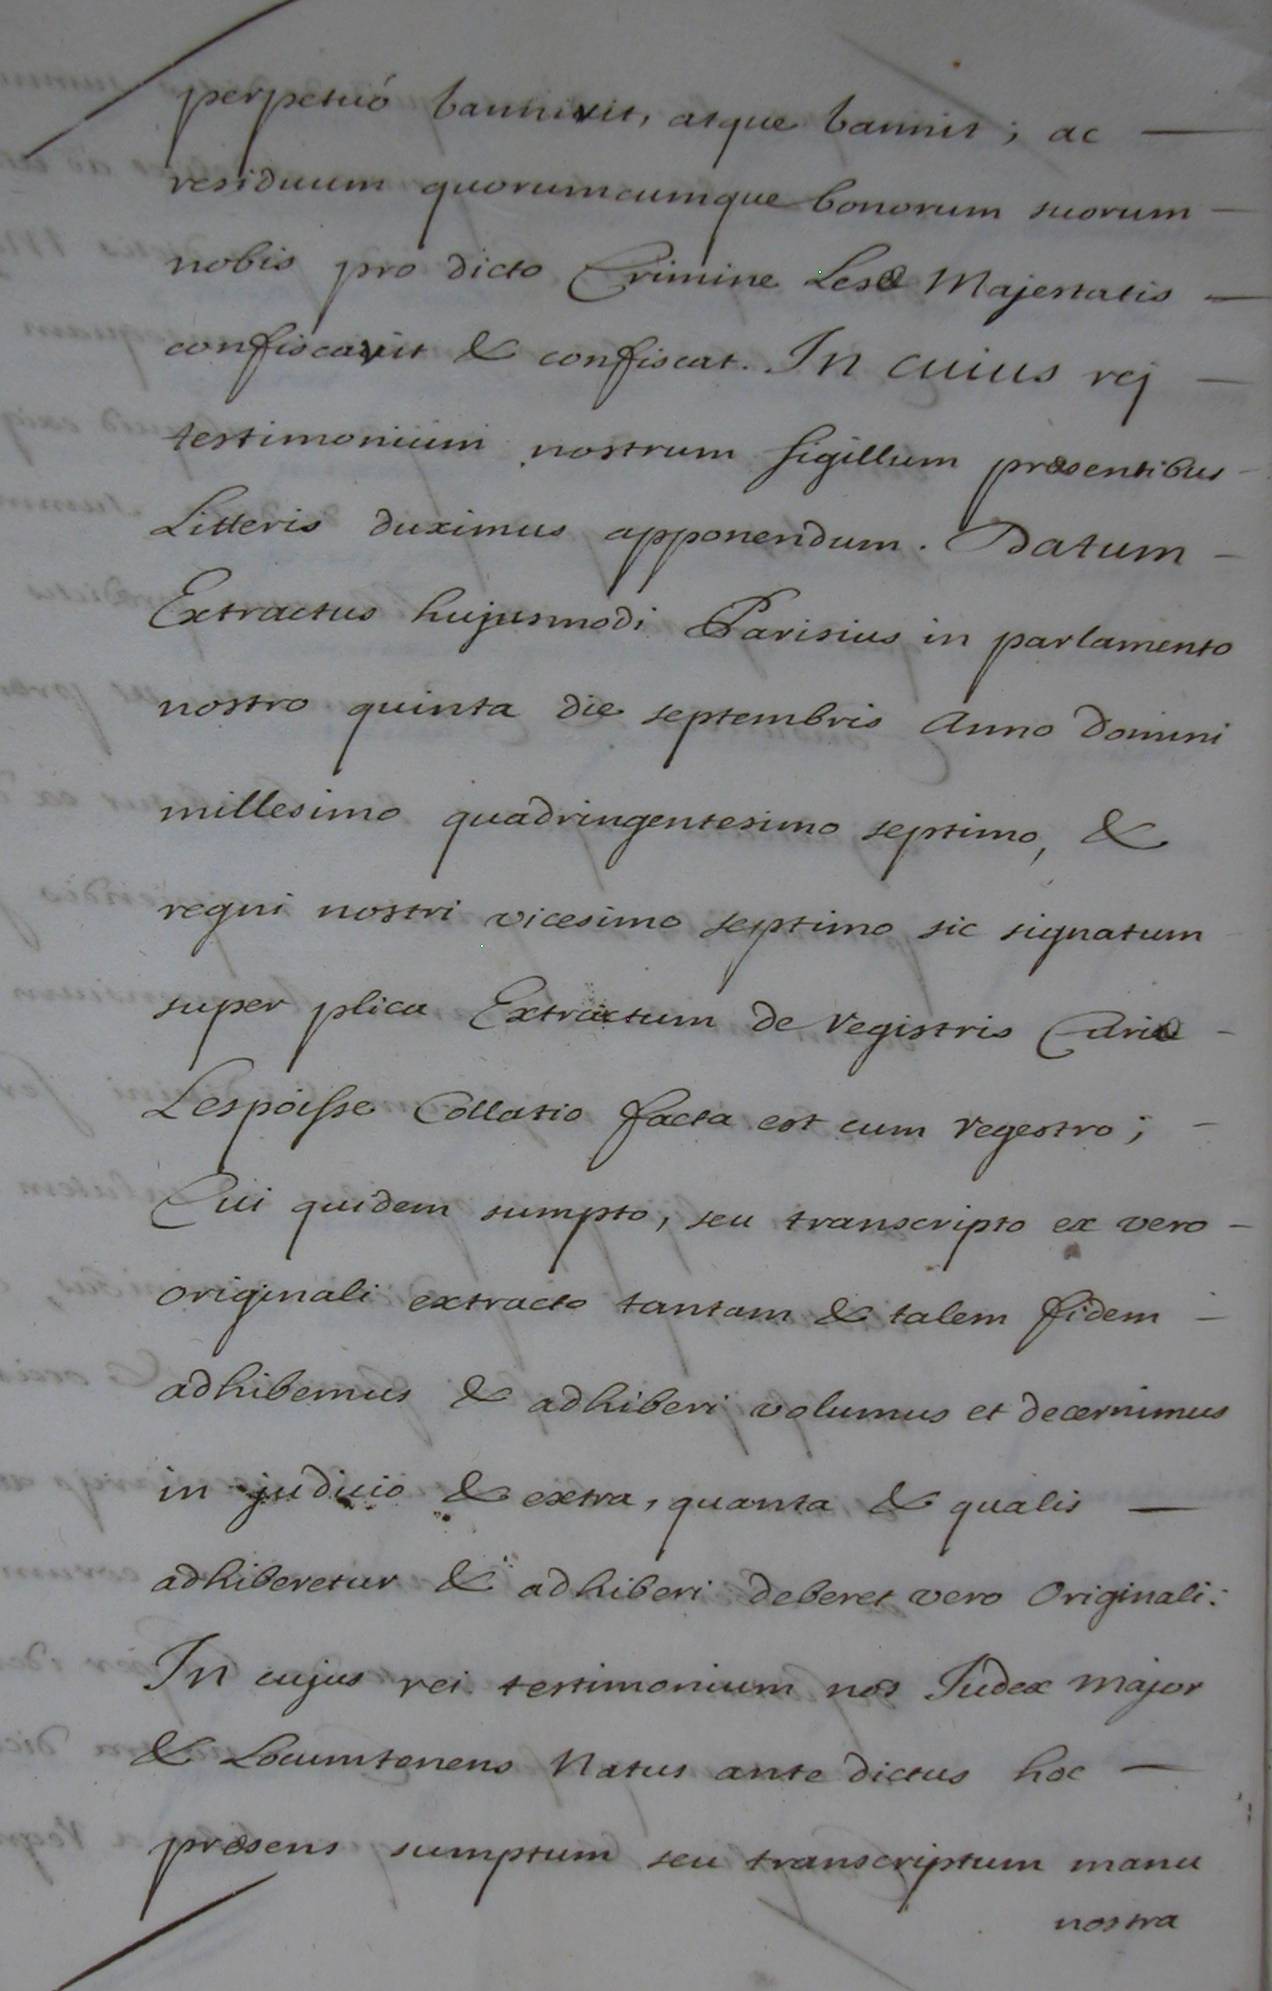 perpetuó bannivit, atque bannit; ac —
residuum quorumcumque bonorum suorum —
nobis pro dicto Crimine Lesæ Majestatis —
confiscavit & confiscat. In cuius rej —
testimonium nostrum sigillum præsentibus -
Litteris duximus apponendum. Datum -
Extractus hujusmodi Parisius in parlamento
nostro quinta die septembris Anno Domini
millesimo quadringentesimo septimo, &
regni nostri vicesimo septimo sic signatum
super plica Extractum de registris Curiæ -
Lespoisse Collatio facta est cum regestro; -
Cui quidem sumpto, seu transcripto ex vero -
originali extracto tantam & talem fidem -
adhibemus & adhiberi volumus et decernimus
in judicio & extra, quanta & qualis —
adhiberetur & adhiberi deberet vero Originali:
In cujus rei testimonium nos Judex major
& Locumtenens Natus ante dictus hoc —
præsens sumptum seu transcriptum manu
nostra